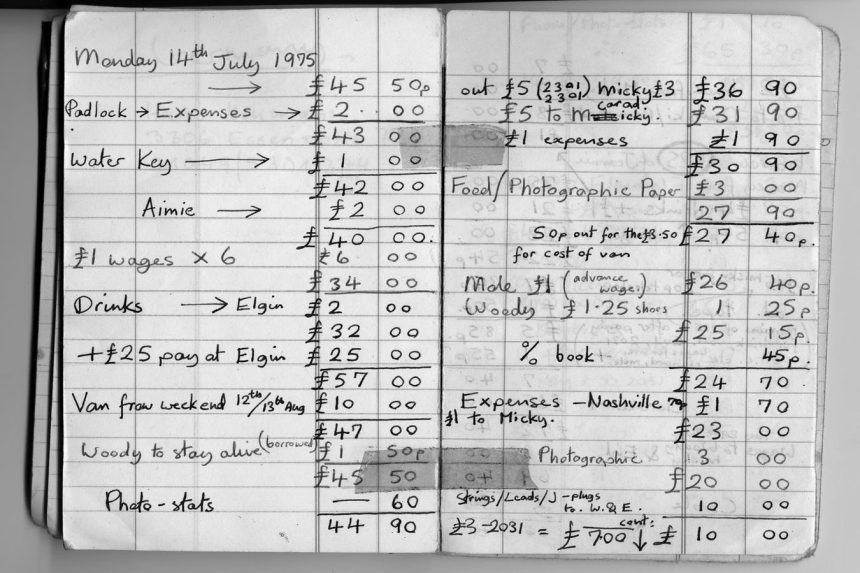 Monday 14th July 1975
→ £45 50p
Padlock → Expenses → £2 00
£43 00
Water Key → £1 00
£42 00
Aimie → £2 00
£40 00.
£1 wages x 6 £6 00
£34 00
Drinks → Elgin £2 00
£32 00
+£25 pay at Elgin £25 00
£57 00
Van from weekend 12th/13th Aug £10 00
£47 00
Woody to stay alive (borrowed) £1 - 50p
£45 50
Photo-stats — 60
44 90
out £5 (2301) Micky £3 £36 90
2301
£5 to Micky. £31 90
carad
£1 expenses £1 90
£30 90
Food/Photographic Paper £3 00
27 90
50p out for the £3.50 £27 40p.
for cost of van
Mole £1 (advance wage.) £26 40p.
Woody £1.25 shoes 1 25p
£25 15p.
% book 45p.
£24 70.
Expenses - Nashville £1 70
£1 to Micky. £23 00
Photographic 3 00
£20 00
Strings/Leads/J-plugs
to. W. & E. 10 00
£3-2031 = £700 cont: ↓ £10 00